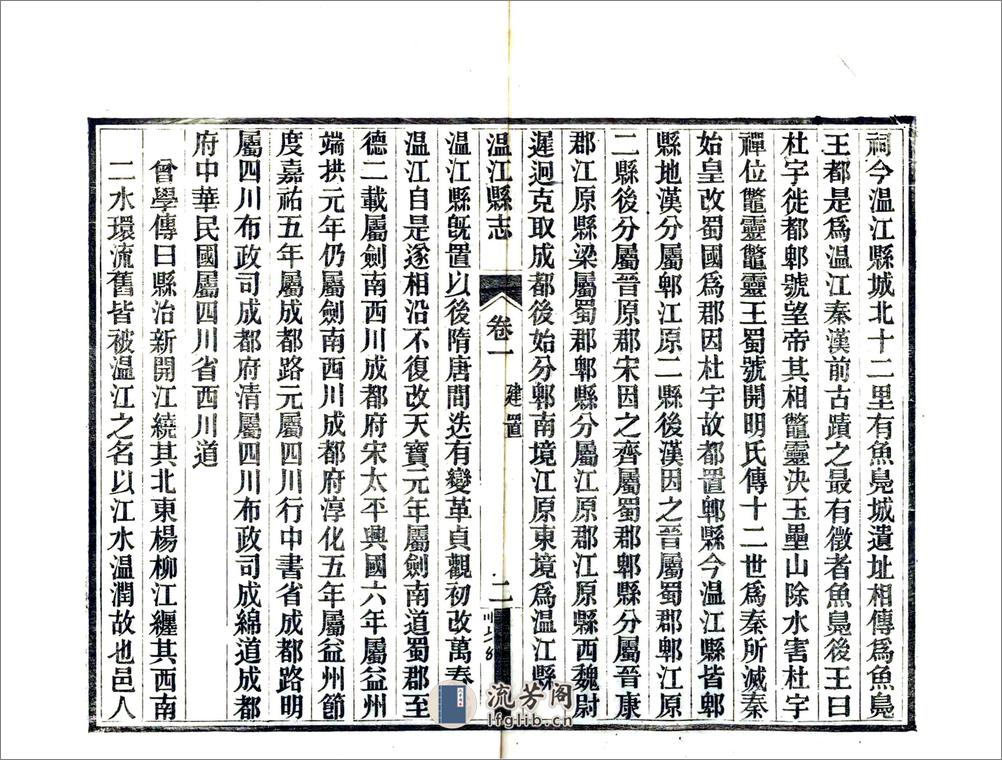 祠今温江縣城北十二里有魚鳧城遺址相傳爲魚鳧
王都是爲温江秦漢前古蹟之最有徵者魚鳧後王曰
杜宇徙都郫號望帝其相鼈靈決玉壘山除水害杜宇
禪位鼈靈鼈靈王蜀號開明氏傳十二世爲秦所滅秦
始皇改蜀國爲郡因杜宇故都置郫縣今温江縣皆郫
縣地漢分屬郫江原二縣後漢因之晉屬蜀郡郫江原
二縣後分屬晉原郡宋因之齊屬蜀郡郫縣分屬晉康
郡江原縣梁屬蜀郡郫縣分屬江原郡江原縣西魏尉
遲迥克取成都後始分郫南境江原東境爲温江縣
温江縣志
卷一
建置
二
温江縣旣置以後隋唐間迭有變革貞觀初改萬春
温江自是遂相沿不復改天寶元年屬劍南道蜀郡至
德二載屬劍南西川成都府宋太平興國六年屬益州
端拱元年仍屬劍南西川成都府淳化五年屬益州節
度嘉祐五年屬成都路元屬四川行中書省成都路明
屬四川布政司成都府清屬四川布政司成綿道成都
府中華民國屬四川省西川道
曾學傳曰縣治新開江繞其北東楊柳江纒其西南
二水環流舊皆被温江之名以江水温潤故也邑人
流芳阁
lfglib.cn